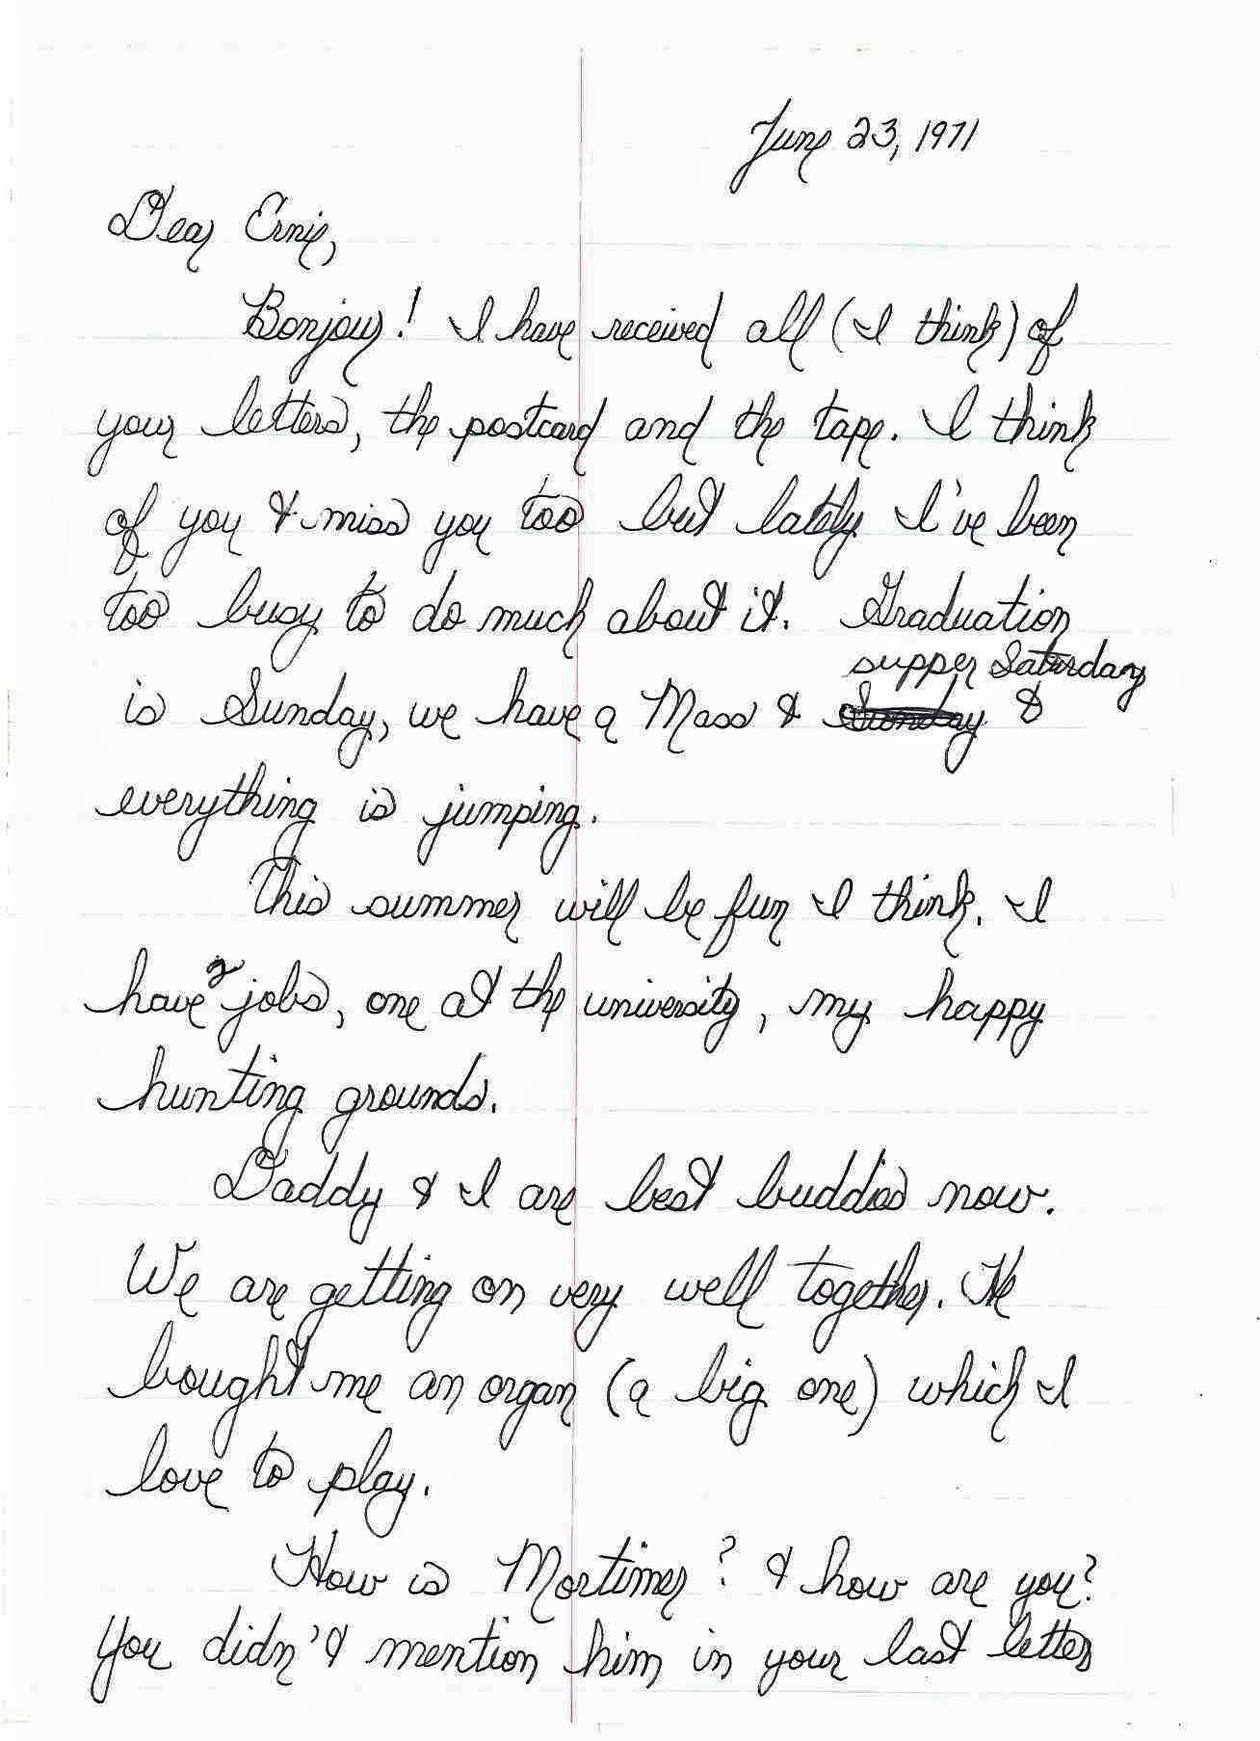 June 23, 1971
Dear Ernie,
Bonjour! I have received all (I think) of
your letters, the postcard and the tape. I think
of you & miss you too but lately I've been
too busy to do much about it. Graduation
supper Saturday
is Sunday, we have a Mass & Sunday &
everything is jumping.
This summer will be fun I think. I
have 2 jobs, one at the university, my happy
hunting grounds.
Daddy & I are best buddies now.
We are getting on very well together. He
bought me an organ (a big one) which I
love to play.
How is Mortimer? & how are you?
You didn't mention him in your last letter